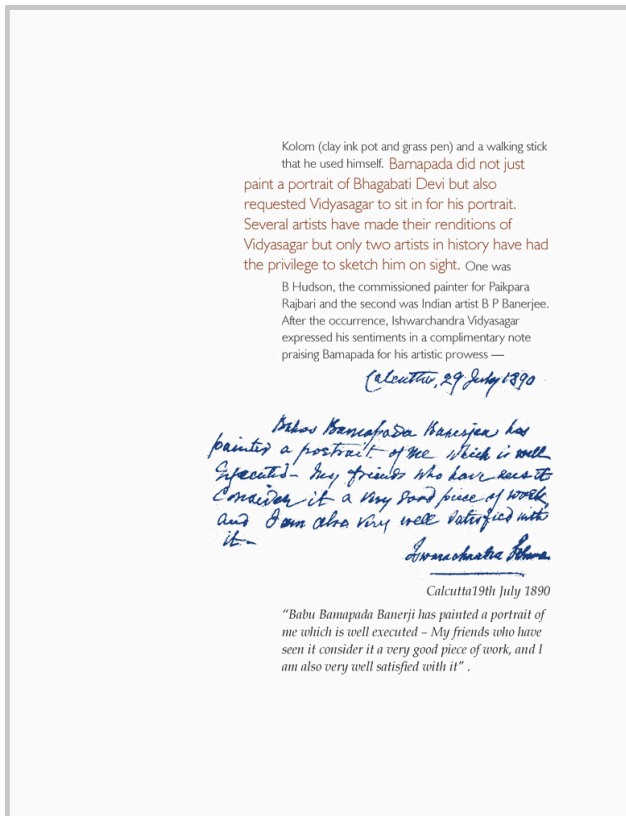 Kolom (clay ink pot and grass pen) and a walking stick
that he used himself. Bamapada did not just
paint a portrait of Bhagabati Devi but also
requested Vidyasagar to sit in for his portrait.
Several artists have made their renditions of
Vidyasagar but only two artists in history have had
the privilege to sketch him on sight. One was
B Hudson, the commissioned painter for Paikpara
Rajbari and the second was Indian artist B P Banerjee.
After the occurrence, Ishwarchandra Vidyasagar
expressed his sentiments in a complimentary note
praising Bamapada for his artistic prowess —
Calcutta, 29 July 1890
Baboo Bamapada Banerjea has
painted a portrait of me which is well
Executed – My friends who have seen it
Consider it a very good piece of work,
and I am also very well satisfied with
it –
Iswarachandra Sharma
Calcutta19th July 1890
“Babu Bamapada Banerji has painted a portrait of
me which is well executed – My friends who have
seen it consider it a very good piece of work, and I
am also very well satisfied with it” .